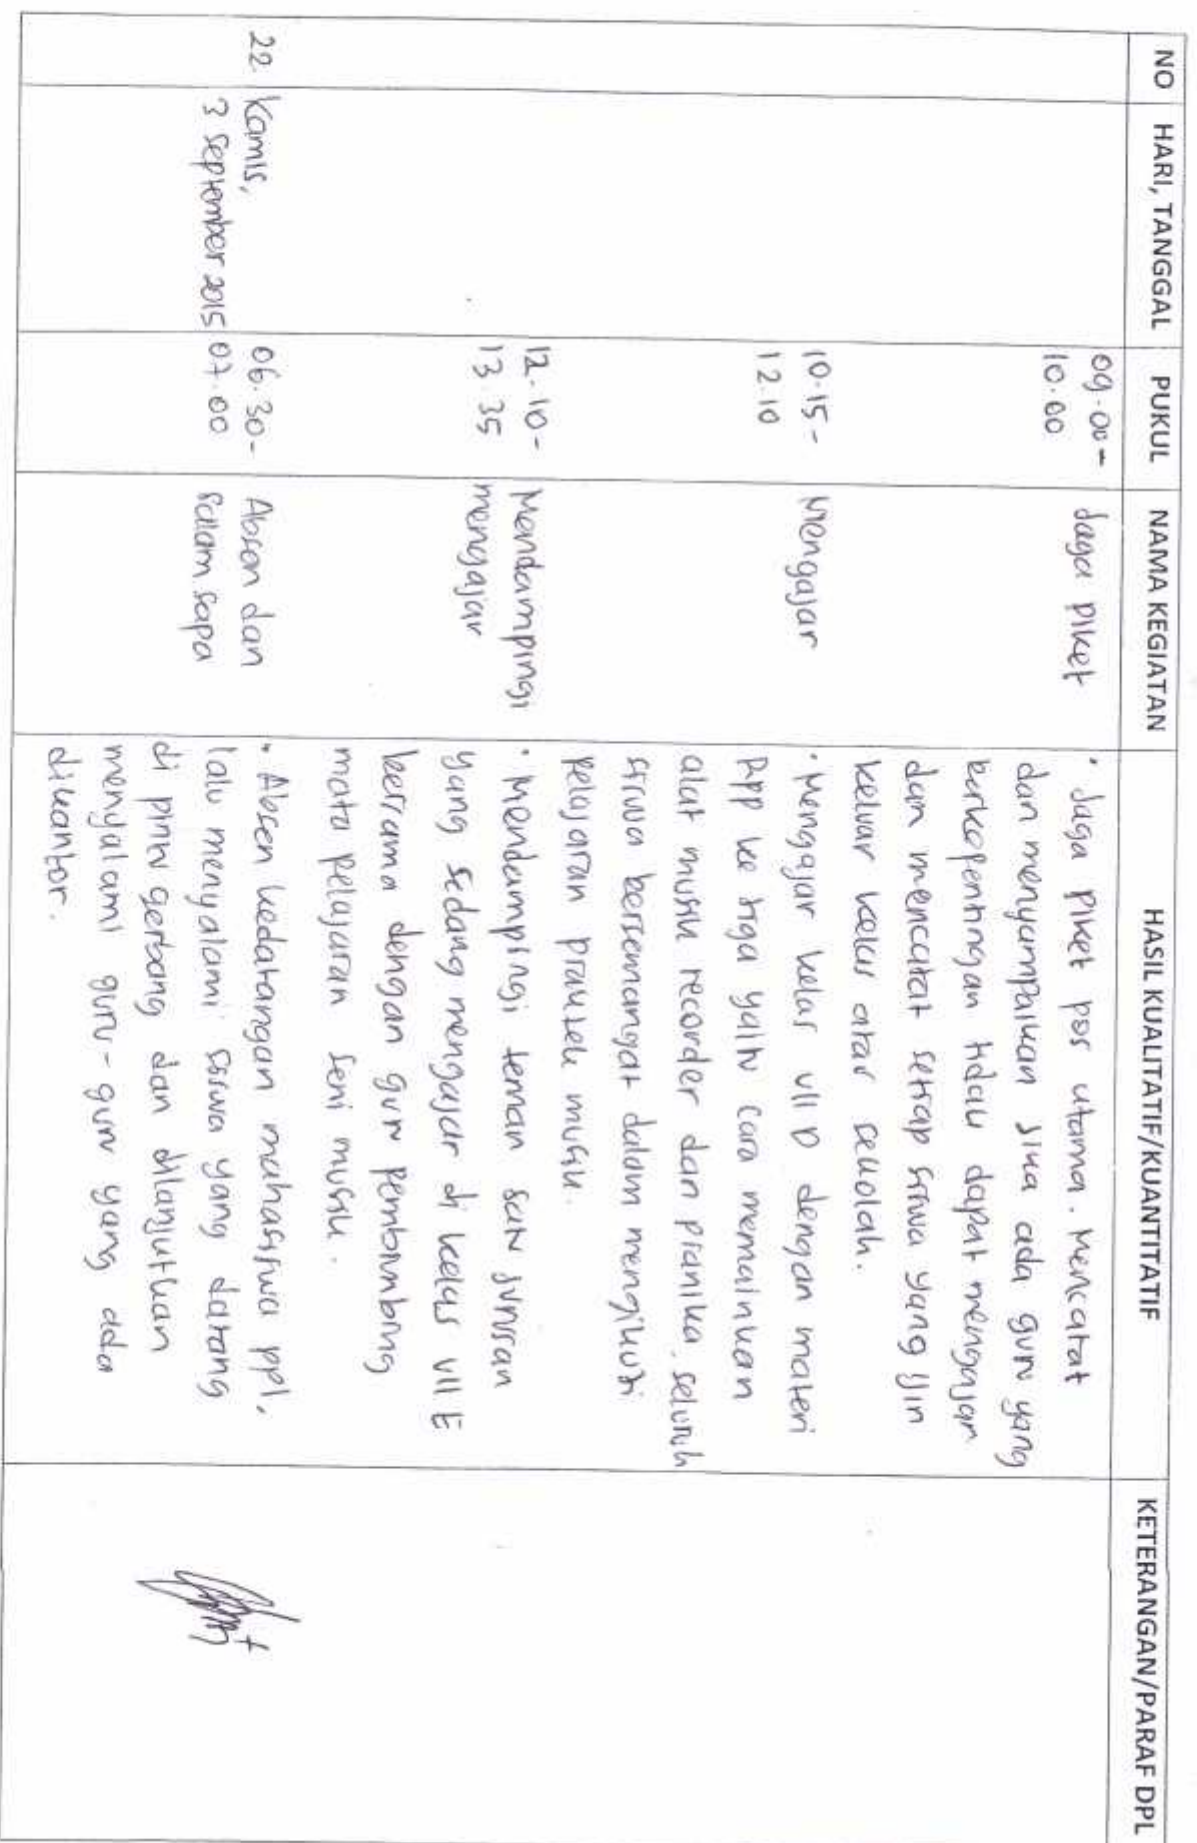 NO HARI, TANGGAL PUKUL NAMA KEGIATAN HASIL KUALITATIF/KUANTITATIF KETERANGAN/PARAF DPL
09.00- Jaga piket • Jaga piket pos utama. Mencatat
10.00 dan menyampaikan jika ada guru yang
berkepentingan tidak dapat mengajar
dan mencatat setiap siswa yang ijin
keluar kelas atas sekolah.
10.15- Mengajar • Mengajar kelas VII D dengan materi
12.10 Rpp ke tiga yaitu cara memainkan
alat musik recorder dan pianika, seluruh
siswa bersemangat dalam mengikuti
pelajaran praktek musik.
12.10- Mendampingi • Mendampingi teman satu jurusan
13.35 mengajar yang sedang mengajar di kelas VII E
bersama dengan guru pembimbing
mata pelajaran seni musik.
22. Kamis, 06.30- Absen dan • Absen kedatangan mahasiswa ppl,
3 September 2015 07.00 salam sapa lalu menyalami siswa yang datang
di pintu gerbang dan dilanjutkan
menyalami guru-guru yang ada
dikantor.